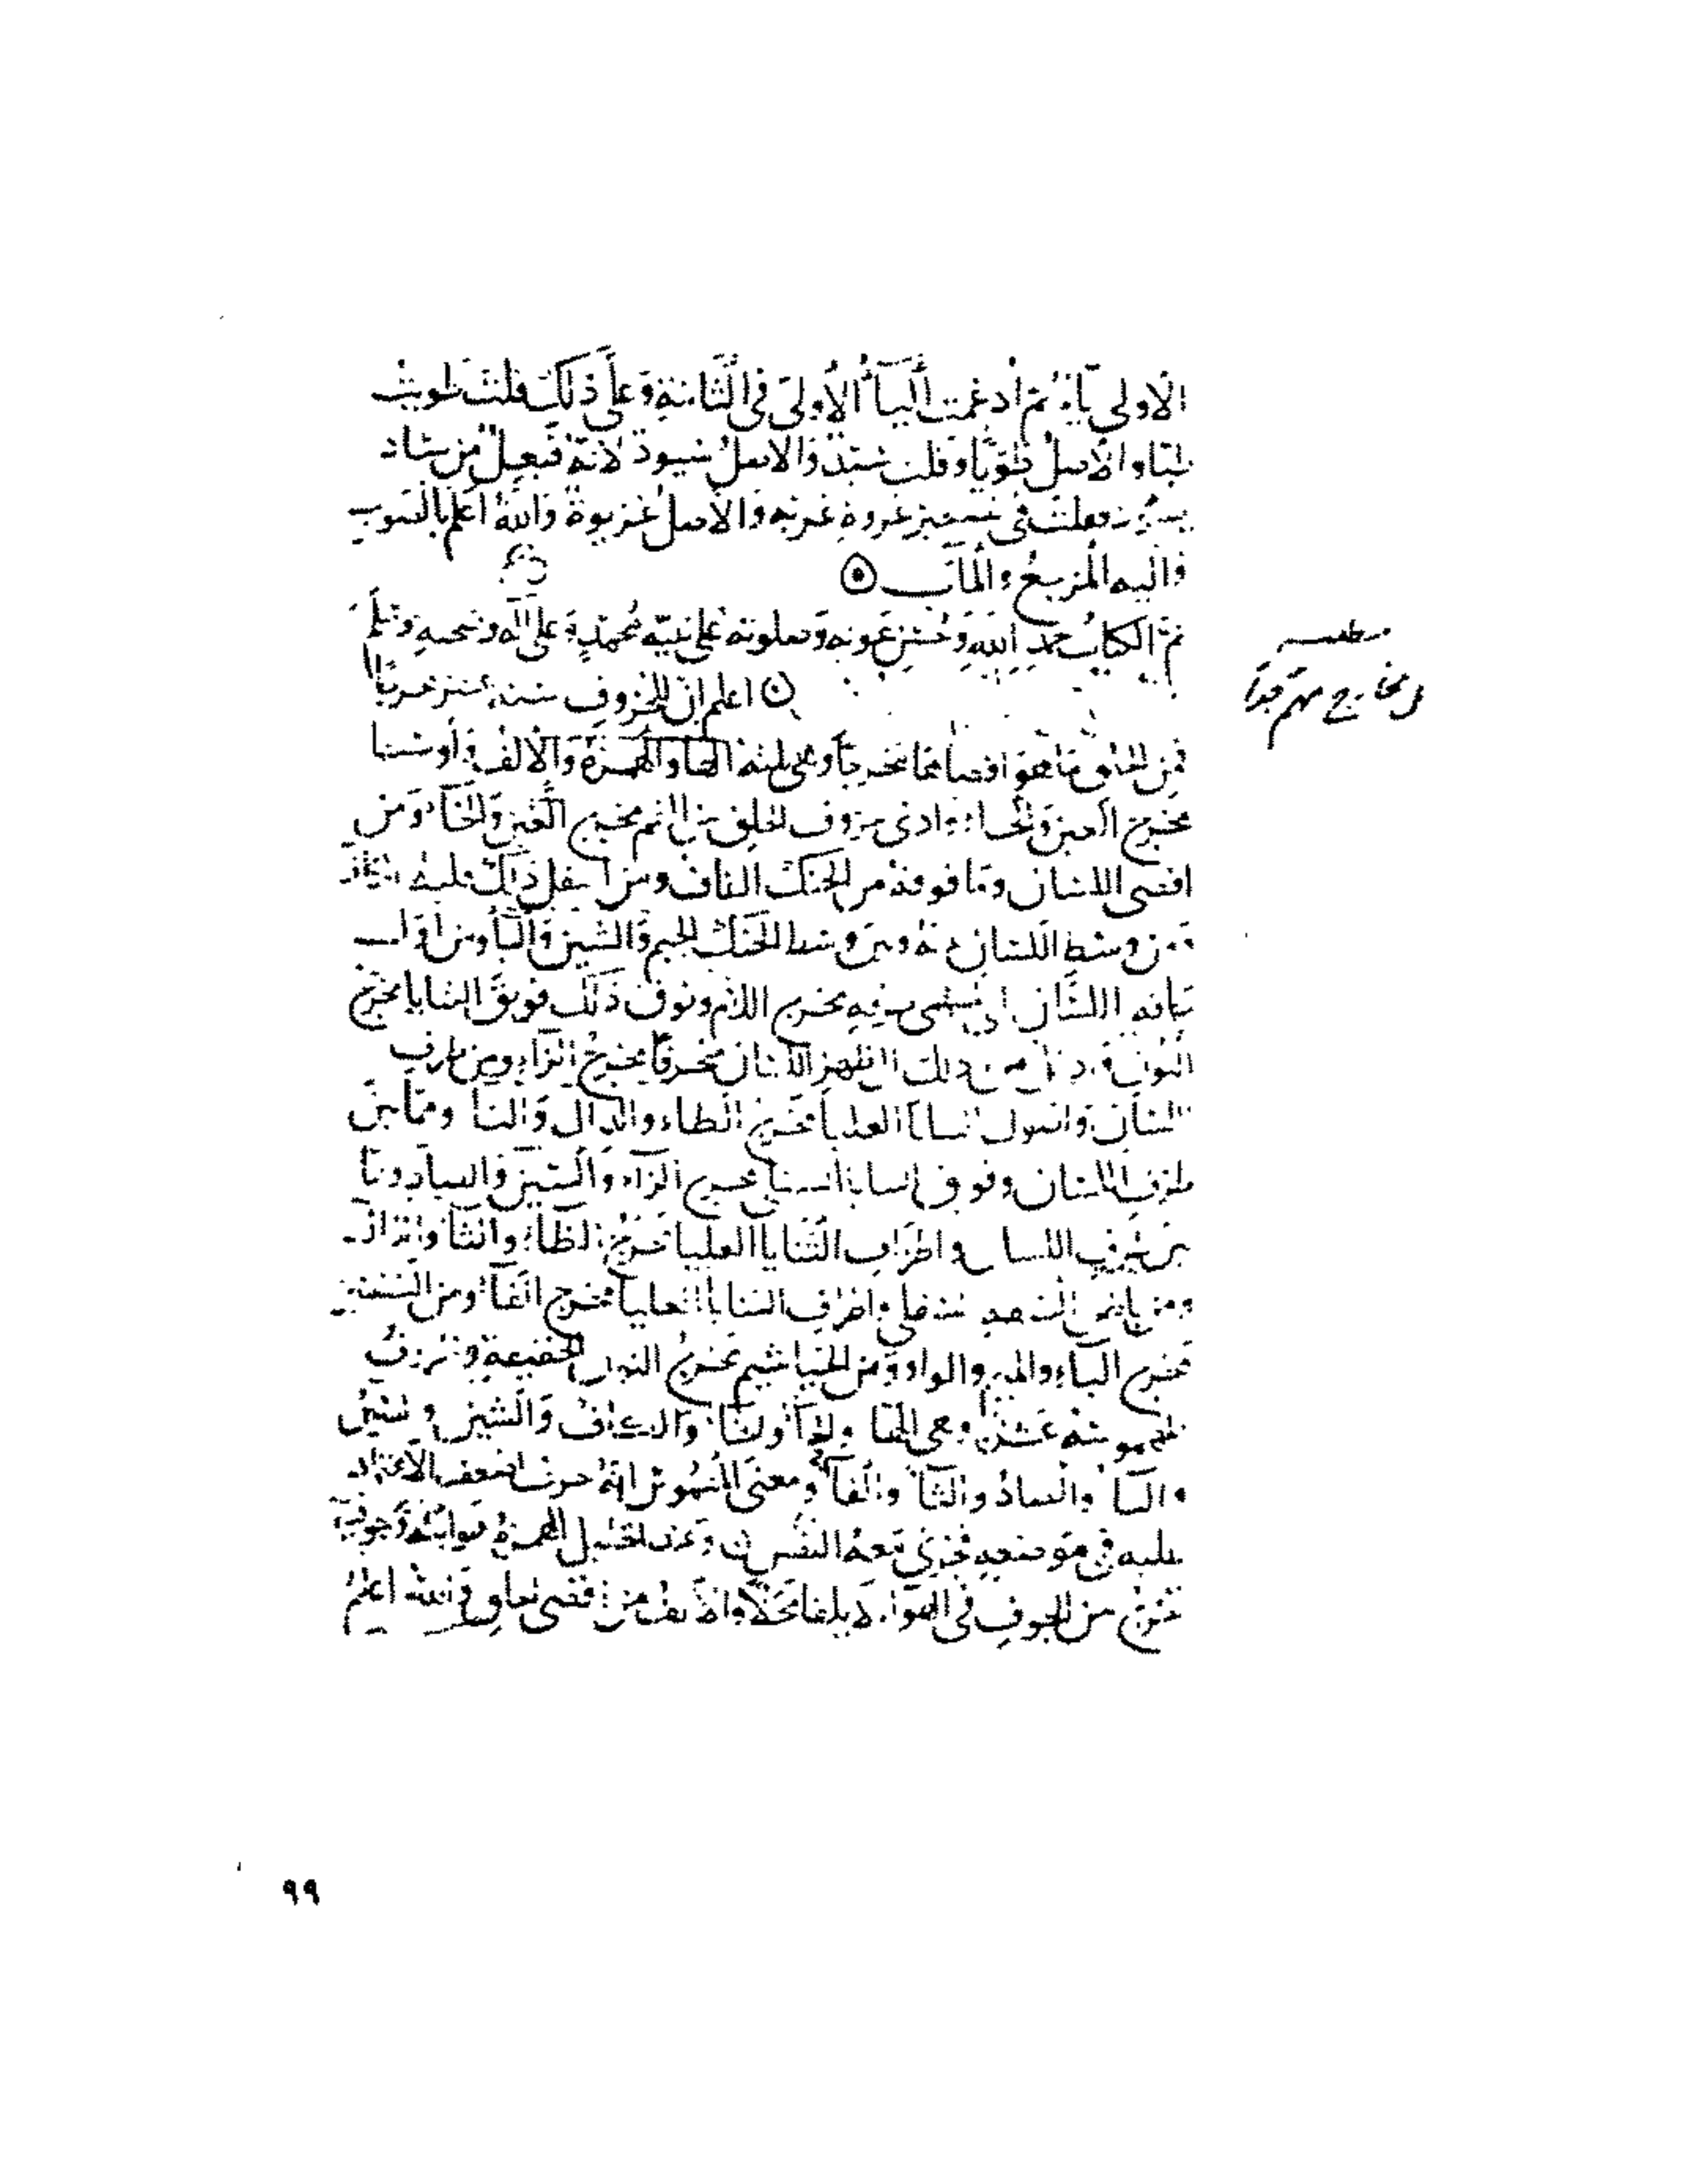 الأولى ياءً ثم أدغمت الياءُ الأولى في الثانية وعلى ذلك قلت طويت
طيّا والأصل طويًا وقلت سيّد والأصل سيود لأنه فيعل من ساد
يسود وقلت في تصغير عروة عرية والأصل عريوة والله أعلم بالصواب
واليه المرجع والمآب
تم الكتاب بحمد الله وحسن عونه وصلوته على نبيّه محمد وعلى آله وصحبه وسلم
اعلم ان للحروف ستة عشر مخرجا
فمن الحلق ثلاثة فاقصاها مخرجًا الهاء والهمزة والألف وأوسطها
مخرج العين والحاء وادنى حروف الحلق من الفم مخرج الغين والخاء ومن
اقصى اللسان وما فوقه من الحنك القاف ومن اسفل ذلك قليلا الكاف
ومن وسط اللسان بينه وبين وسط الحنك الجيم والشين والياء ومن اول
حافة اللسان الى منتهى طرفه مخرج اللام وفوق ذلك فويق الثنايا مخرج
النون وادخل من ذلك الى ظهر اللسان منحرفًا مخرج الراء ومن طرف
اللسان واصول الثنايا العليا مخرج الطاء والدال والتاء ومما بين
طرف اللسان وفوق الثنايا السفلى مخرج الزاء والسين والصاد ومما
بين طرف اللسان واطراف الثنايا العليا مخرج الظاء والثاء والذال
ومن باطن الشفة السفلى واطراف الثنايا العليا مخرج الفاء ومن الشفتين
مخرج الباء والميم والواو ومن الخياشيم مخرج النون الخفيفة والحروف
المهموسة عشرة وهي الهاء والحاء والخاء والكاف والشين والسين
والتاء والصاد والثاء والفاء ومعنى المهموس انه حرف اضعف الاعتماد
عليه في موضعه فجرى معه النفس وعند الخليل الهمزة هوائية وجوفية
تخرج من الجوف في الهواء لا يلقاها محلا والألف من اقصى الحلق والله اعلم
مطلب
في مخارج مهم جدا
٩٩